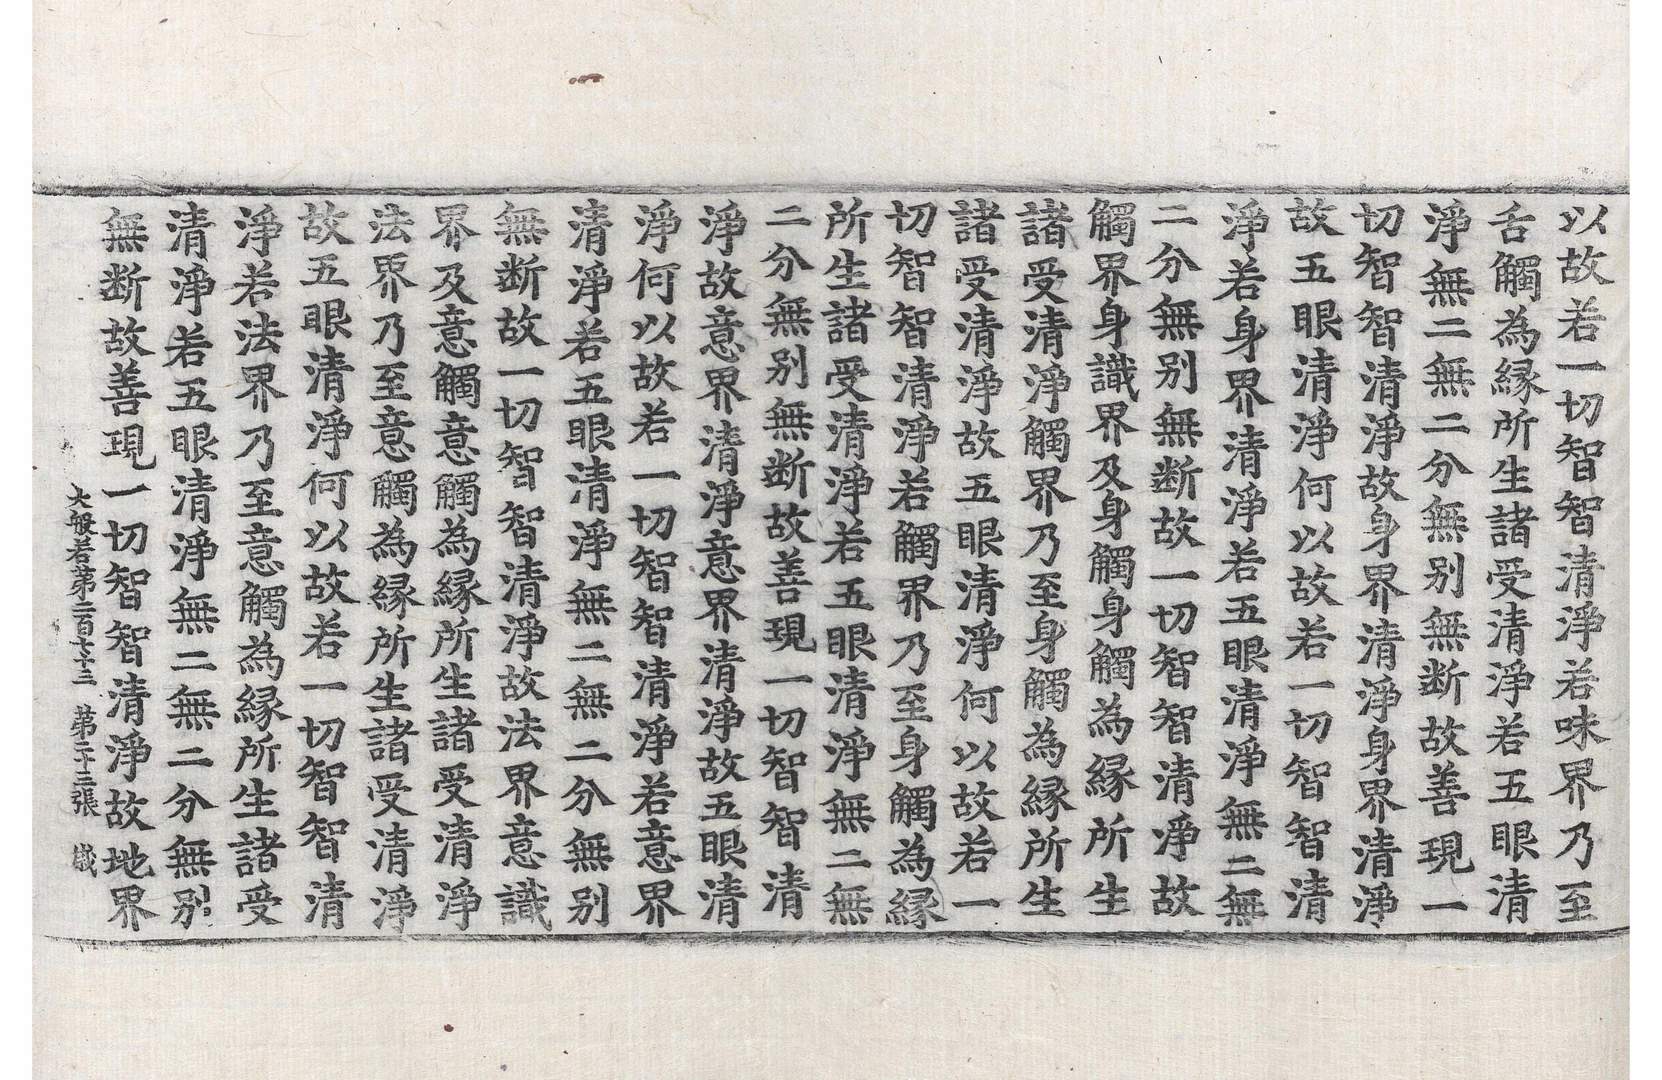 以故若一切智智清淨若味界乃至
舌觸為緣所生諸受清淨若五眼清
淨無二無二分無別無断故善現一
切智智清淨故身界清淨身界清淨
故五眼清淨何以故若一切智智清
淨若身界清淨若五眼清淨無二無
二分無別無断故一切智智清淨故
觸界身識界及身觸身觸為緣所生
諸受清淨觸界乃至身觸為緣所生
諸受清淨故五眼清淨何以故若一
切智智清淨若觸界乃至身觸為緣
所生諸受清淨若五眼清淨無二無
二分無別無断故善現一切智智清
淨故意界清淨意界清淨故五眼清
淨何以故若一切智智清淨若意界
清淨若五眼清淨無二無二分無別
無断故一切智智清淨故法界意識
界及意觸意觸為緣所生諸受清淨
法界乃至意觸為緣所生諸受清淨
故五眼清淨何以故若一切智智清
淨若法界乃至意觸為緣所生諸受
清淨若五眼清淨無二無二分無別
無断故善現一切智智清淨故地界
大般若第二百七十三 第二十三張